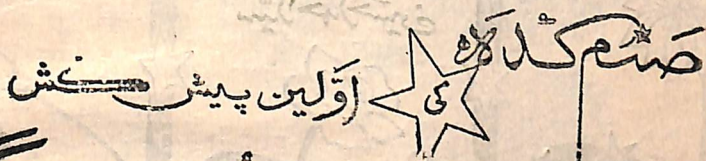 صنم کدہ کی اوّلین پیش کش